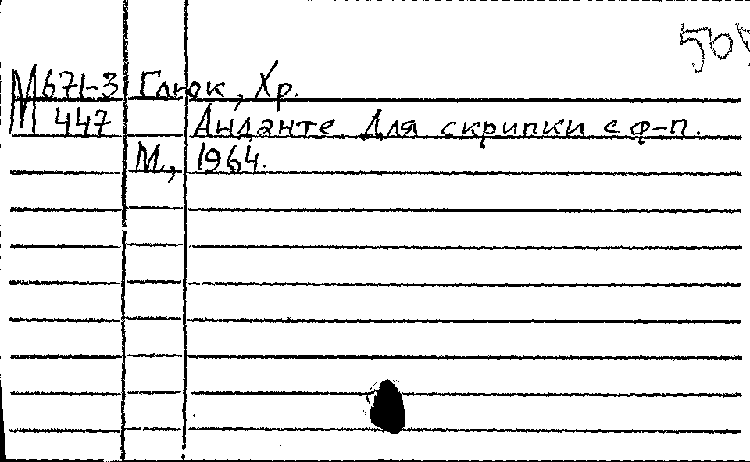 М671-3 Глюк, Хр.
447 Анданте. Для скрипки с ф-п.
М., 1964.